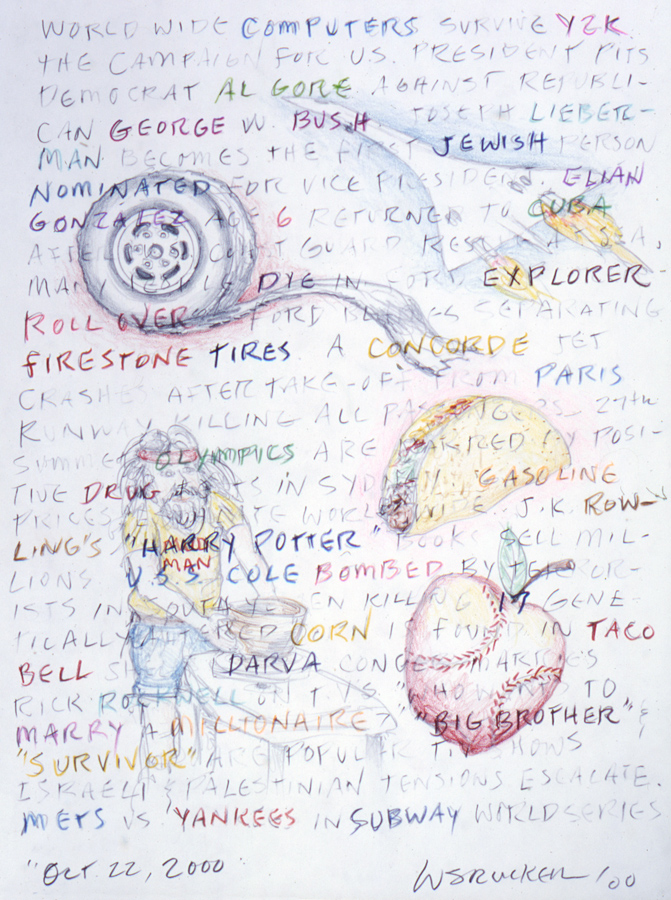 WORLD WIDE COMPUTERS SURVIVE Y2K.
THE CAMPAIGN FOR U.S. PRESIDENT PITS
DEMOCRAT AL GORE AGAINST REPUBLI-
CAN GEORGE W. BUSH JOSEPH LIEBER-
MAN BECOMES THE FIRST JEWISH PERSON
NOMINATED FOR VICE PRESIDENT. ELIAN
GONZALEZ AGE 6 RETURNED TO CUBA
AFTER COAST GUARD RESCUE AT SEA.
MANY PEOPLE DYE IN FORD EXPLORER
ROLL OVER FORD BLAMES SEPARATING
FIRESTONE TIRES. A CONCORDE JET
CRASHES AFTER TAKE-OFF FROM PARIS
RUNWAY KILLING ALL PASSENGERS. 27th
SUMMER OLYMPICS ARE MARRED BY POSI-
TIVE DRUG TESTS IN SYDNEY. GASOLINE
PRICES WORLD WIDE. J.K. ROW-
LING'S "HARRY POTTER" BOOKS SELL MIL-
LIONS. U.S.S. COLE BOMBED BY TERROR-
MAN
ISTS IN SOUTH YEMEN KILLING 17 GENE-
TICALLY ALTERED CORN IS FOUND IN TACO
BELL DARVA CONGER MARRIES
RICK ROCKWELL ON T.V.'S "HOW TO
MARRY A MILLIONAIRE?" "BIG BROTHER" &
"SURVIVOR" ARE POPULAR T.V. SHOWS
ISRAELI & PALESTINIAN TENSIONS ESCALATE.
METS VS. YANKEES IN SUBWAY WORLD SERIES
"OCT. 22, 2000"
WSRUCKER '00